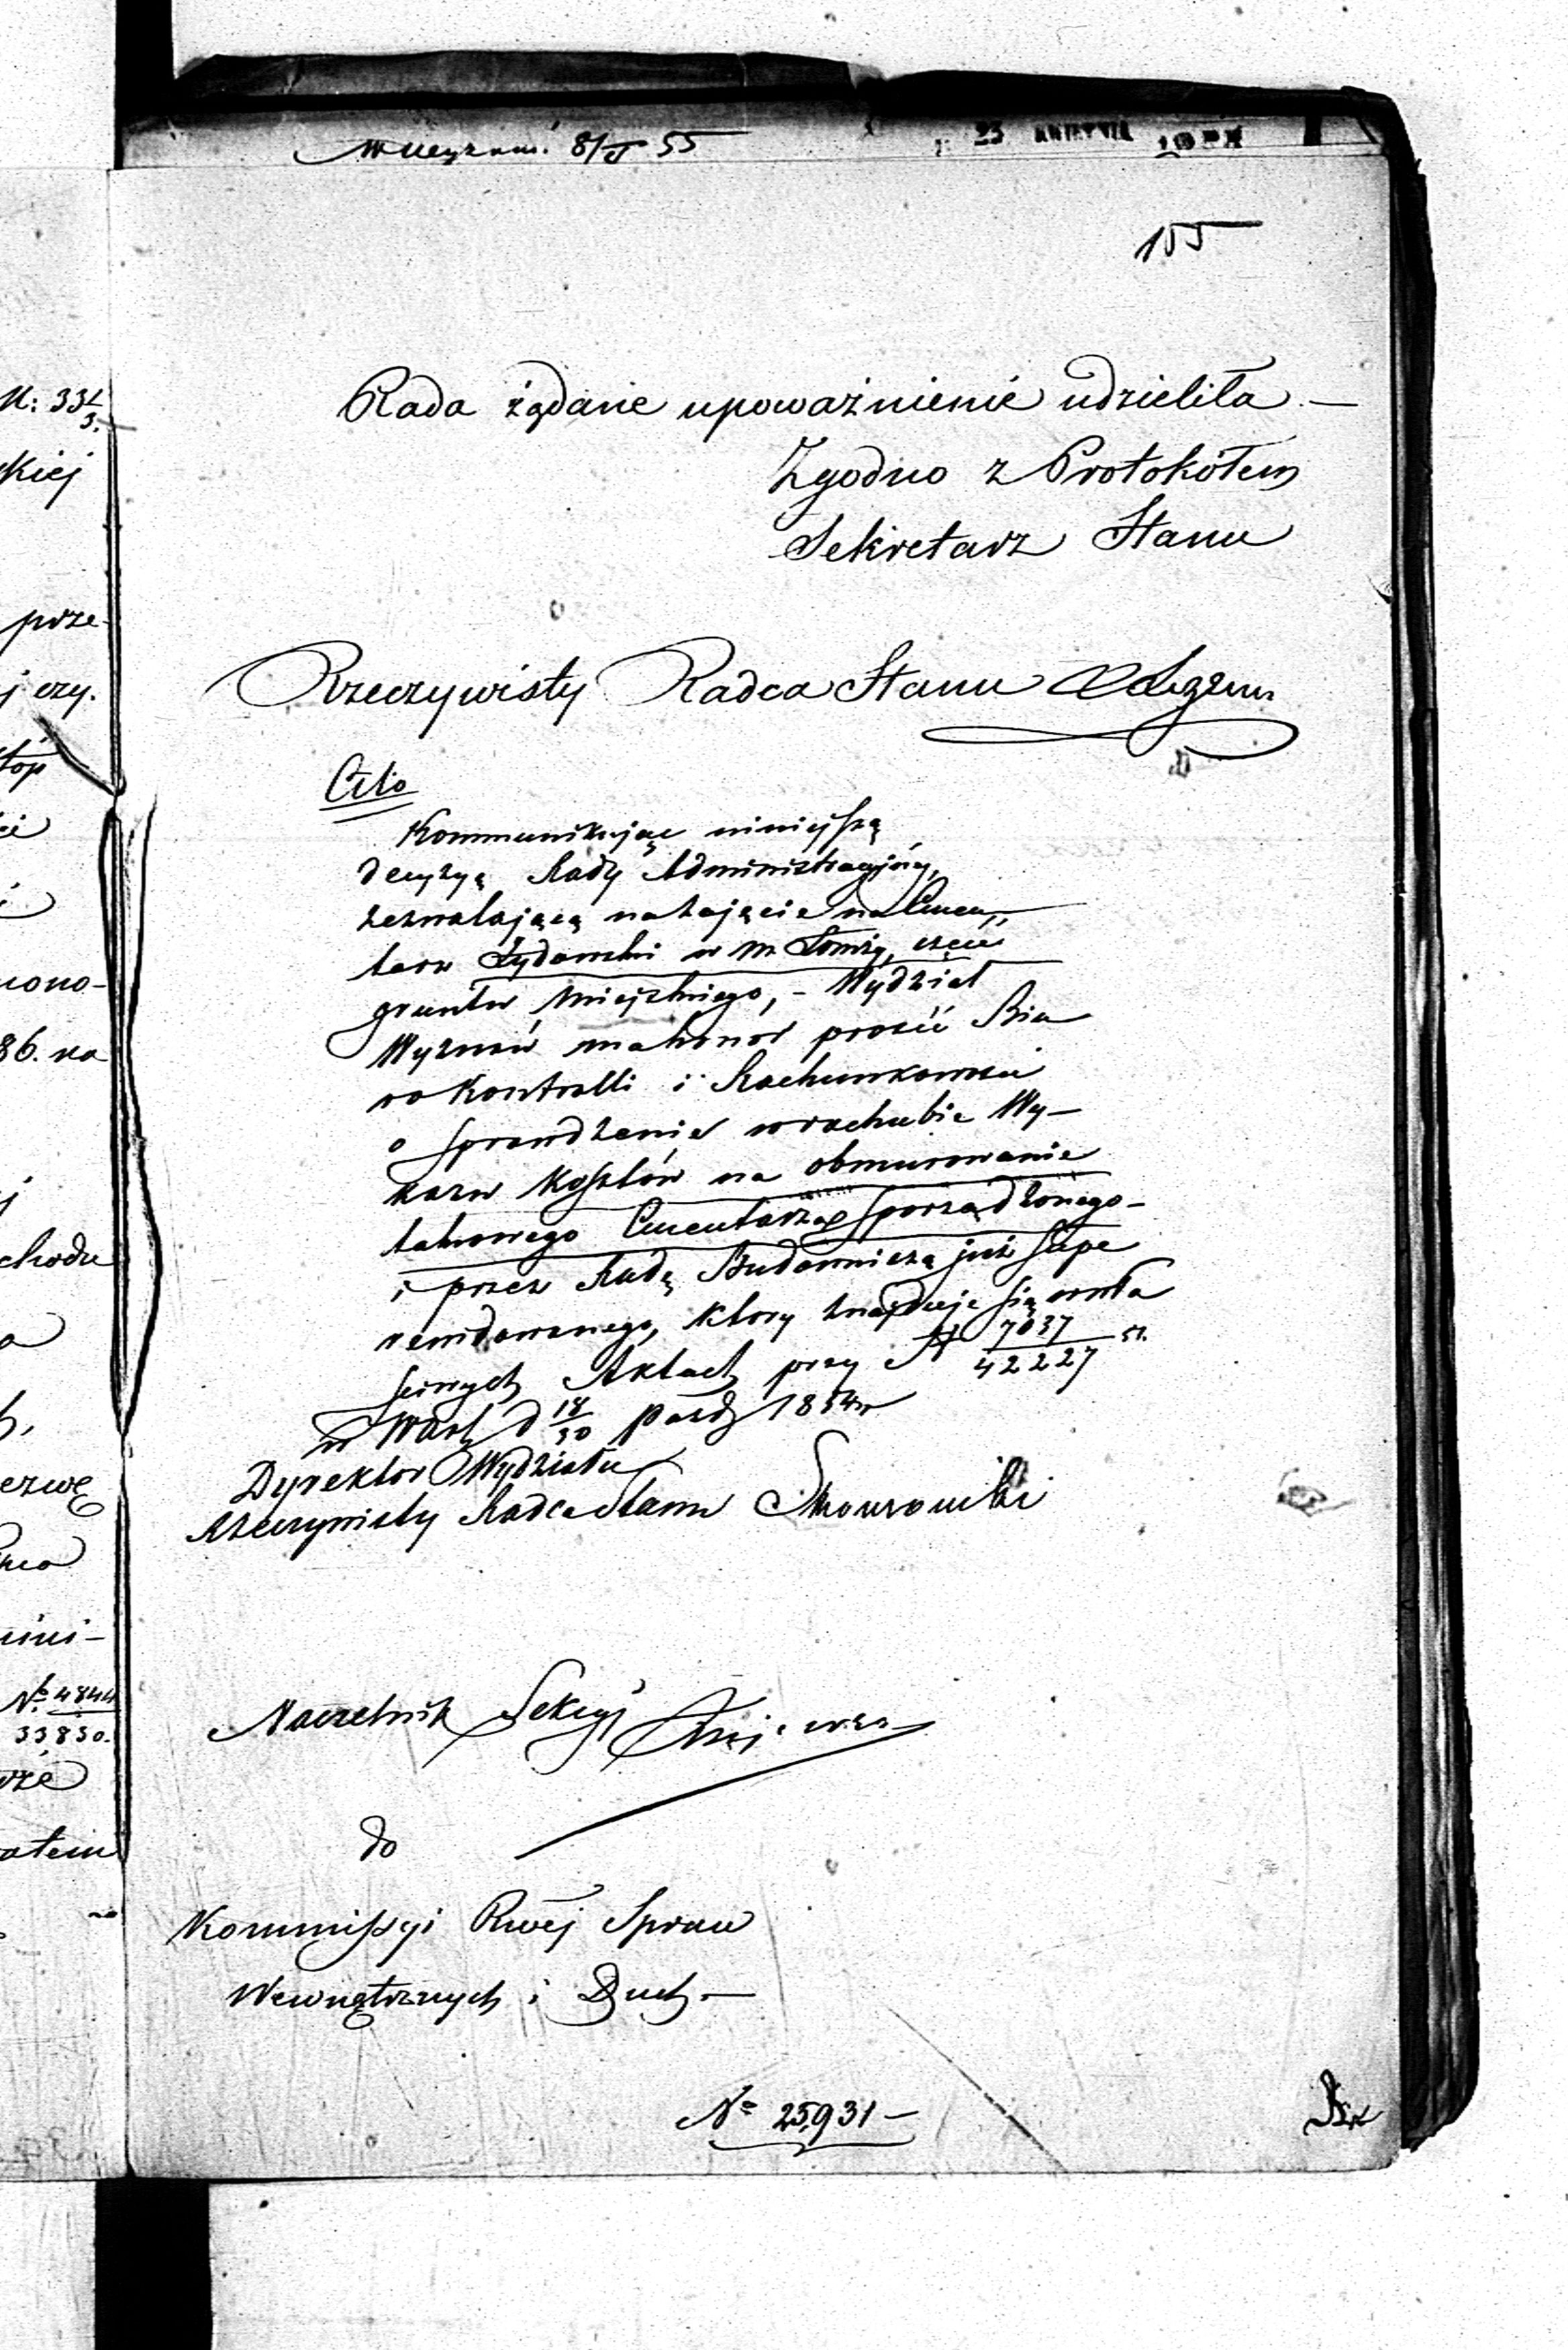 8/V 55
155
Rada żądane upoważnienie udzieliła. —
Zgodno z Protokołem
Sekretarz Stanu
Rzeczywisty Radca Stanu
Cito
Kommunikując niniejszą
decyzyą Rady Administracyjnej,
zezwalającą na zajęcie na Cmen„
tarz Żydowski w m. Łomży, części
gruntu Miejskiego, – Wydział
Wyznań ma honor prosić Biu
ro Kontrolli i Rachunkowości
o sprawdzenie w rachubie Wy–
kazu Kosztów na obmurowanie
takowego Cmentarza sporządzonego–
i przez Radę Budowniczą już supe
rewidowanego, który znajduje się w wła
ściwych Aktach przy N 7037/42227 51.
w Warsz d 18/30 Paźdz 1854 r
Dyrektor Wydziału
Rzeczywisty Radca Stanu Skowroński
Naczelnik Sekcyi
do
Kommissyi Rwej Spraw
Wewnętrznych i Duch. —
N° 25,931 —
N: 334/3.
skiej
prze-
j czy.
stóp
ci
nono-
86. na
chodu
a
ezwę
mini-
N° 4844
33,830.